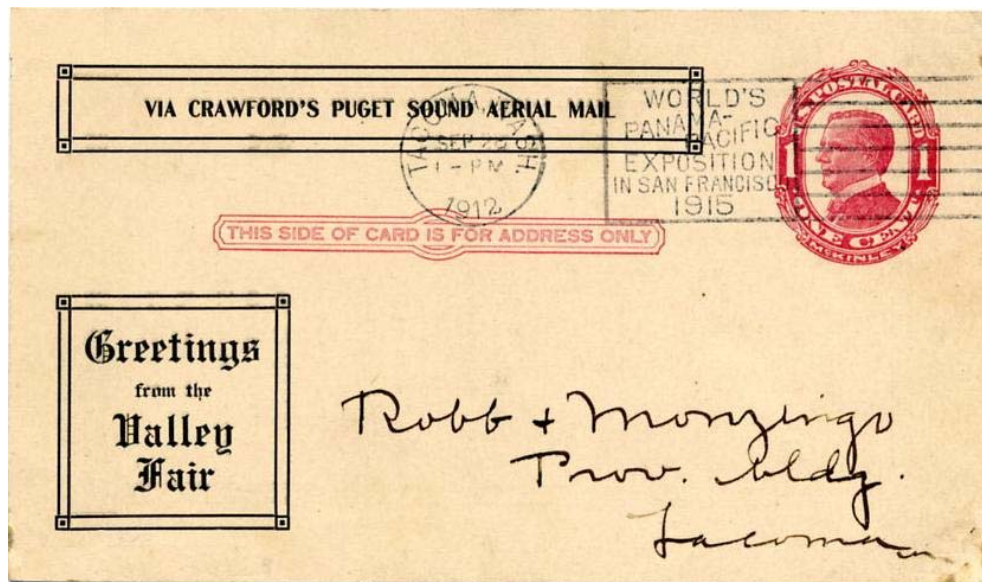 VIA CRAWFORD'S PUGET SOUND AERIAL MAIL
TACOMA, WASH.
SEP
1-PM
1912
WORLD'S
PANAMA-
PACIFIC
EXPOSITION
IN SAN FRANCISCO
1915
U.S. POSTAL CARD
1 1
ONE CENT
McKINLEY
THIS SIDE OF CARD IS FOR ADDRESS ONLY
Greetings
from the
Valley
Fair
Robb + Monzingo
Prov. bldg.
Tacoma